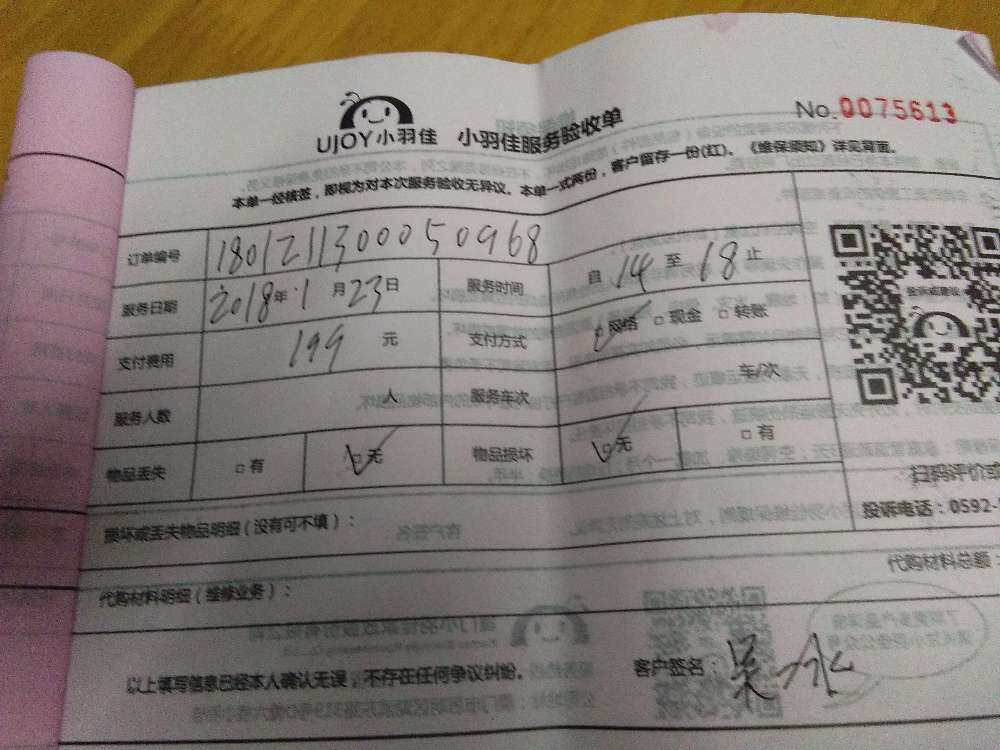 UJOY小羽佳 小羽佳服务验收单
No.0075613
本单一经核签，即视为对本次服务验收无异议。本单一式两份，客户留存一份(红)。《维保须知》详见背面。
订单编号 180121130005 0968
服务日期 2018年1月23日 服务时间 自14至18止
支付费用 199元 支付方式 □网络 □现金 □转账
服务人数 人 服务车次 车/次
物品丢失 □有 □无 物品损坏 □无 □有
扫码评价或
损坏或丢失物品明细（没有可不填）：
投诉电话：0592-
代购材料明细（维修业务）：
代购材料总额：
以上填写信息已经本人确认无误，不存在任何争议纠纷。
客户签名：吴